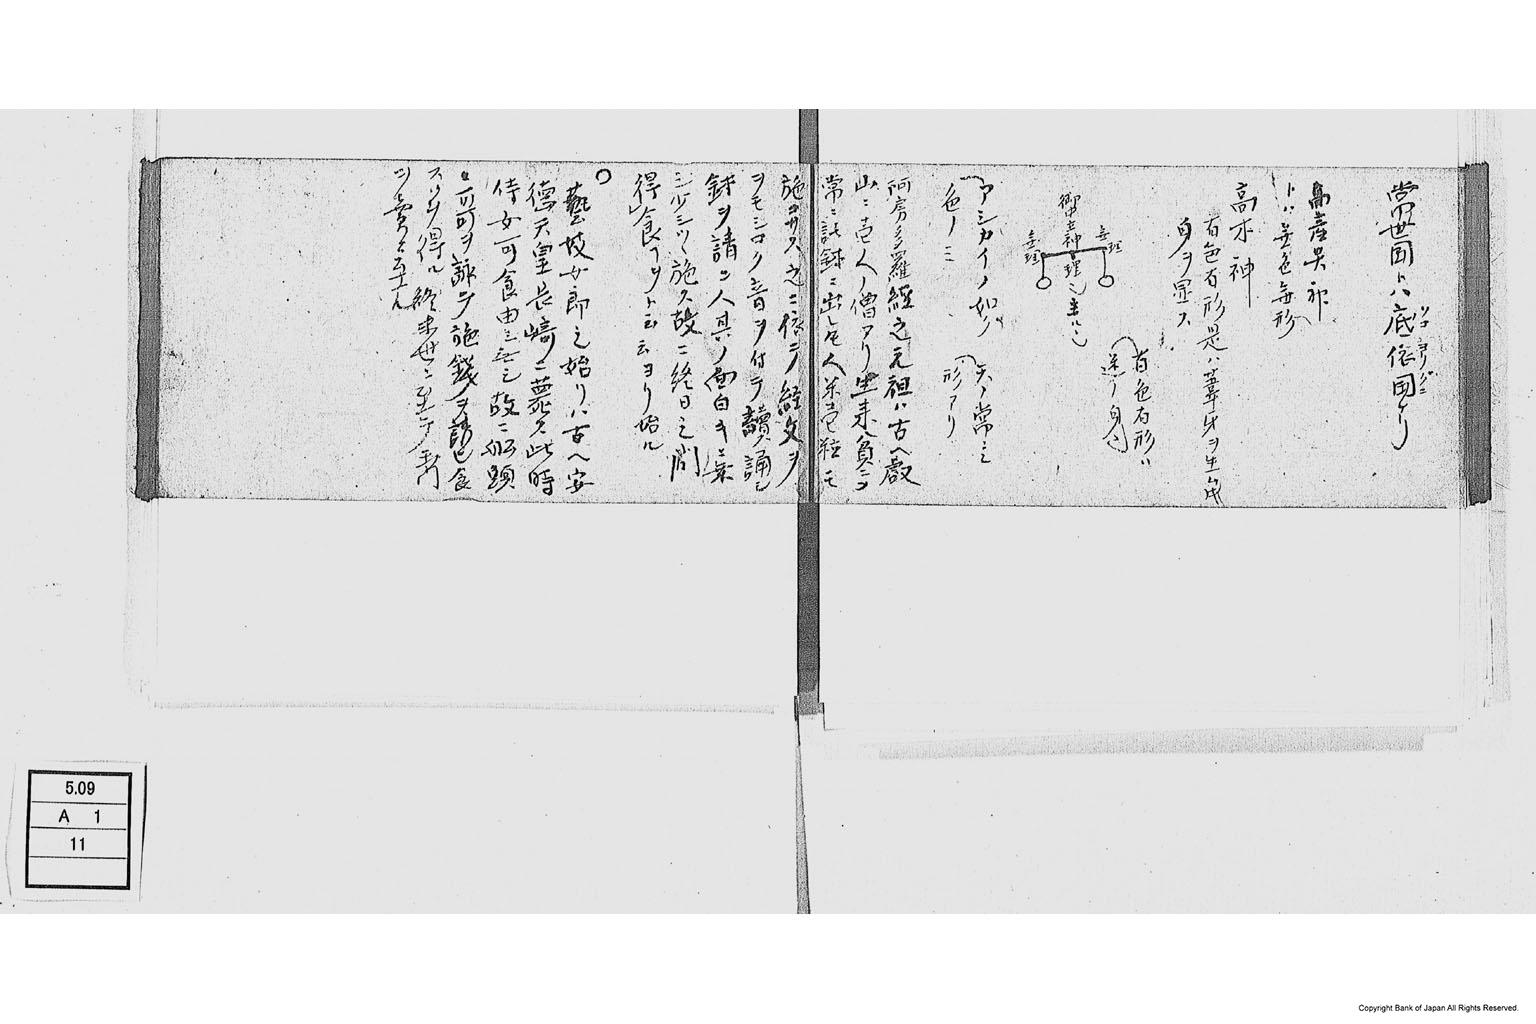 常世国トハ底依国ナリ
ソコヨリクニ
高産巣神
トハ無色無形
高木神
有色有形是ハ葦牙ヲ生成
身ヲ显ス
有色有形ハ
御中主神
無理
理
無理
アシカイノ如ク
天ノ常ニシ
色ノミ
形アリ
阿房多羅經之元祖ハ古ヘ嚴
山ニ壱人ノ僧アリ生来貧ニシ
常ニ託鉢ニ出レトモ人米壱粒モ
施サス之ニ依テ経文ヲ
ヲモシロク音ヲ付テ讀誦シ
鉢ヲ請ニ人其ノ面白キニ乗
シ少シツヽ施ス故ニ終日之間
得食フコト云云ヨリ始ル
○
藝妓女郎之始リハ古ヘ安
德天皇長崎ニ薨ス此時
侍女可食由シ無シ故ニ
可ヲ詠シテ施錢ヲ請ヒ食
スルヿヲ得ル終末世ニ至テ
5.09
A 1
11
Copyright Bank of Japan All Rights Reserved.